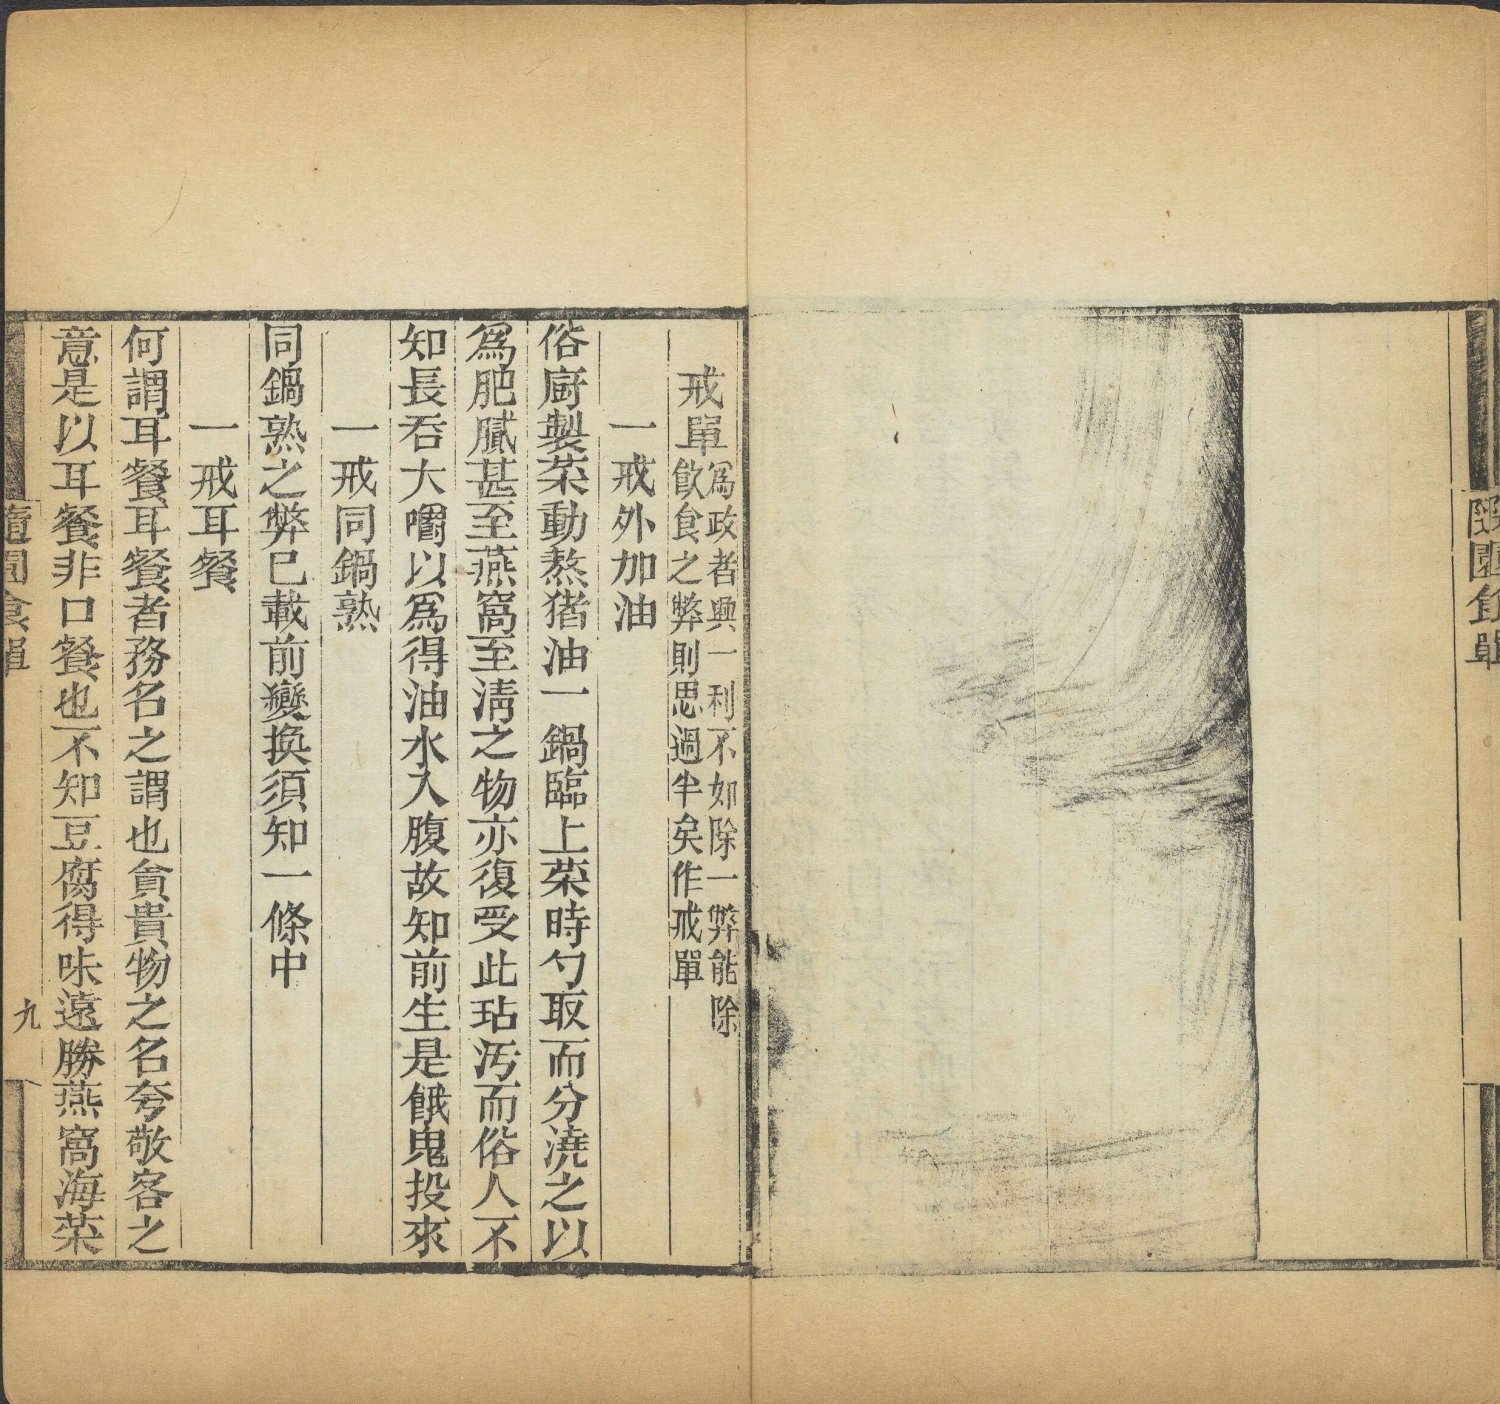 隨園食單
戒單
爲政者興一利不如除一弊能除
飮食之弊則思過半矣作戒單
一戒外加油
俗廚製菜動熬猪油一鍋臨上菜時勺取而分澆之以
爲肥膩甚至燕窩至淸之物亦復受此玷汚而俗人不
知長吞大嚼以爲得油水入腹故知前生是餓鬼投來
一戒同鍋熟
同鍋熟之弊已載前變換須知一條中
一戒耳餐
何謂耳餐耳餐者務名之謂也貪貴物之名夸敬客之
意是以耳餐非口餐也不知豆腐得味遠勝燕窩海菜
隨園食單
九